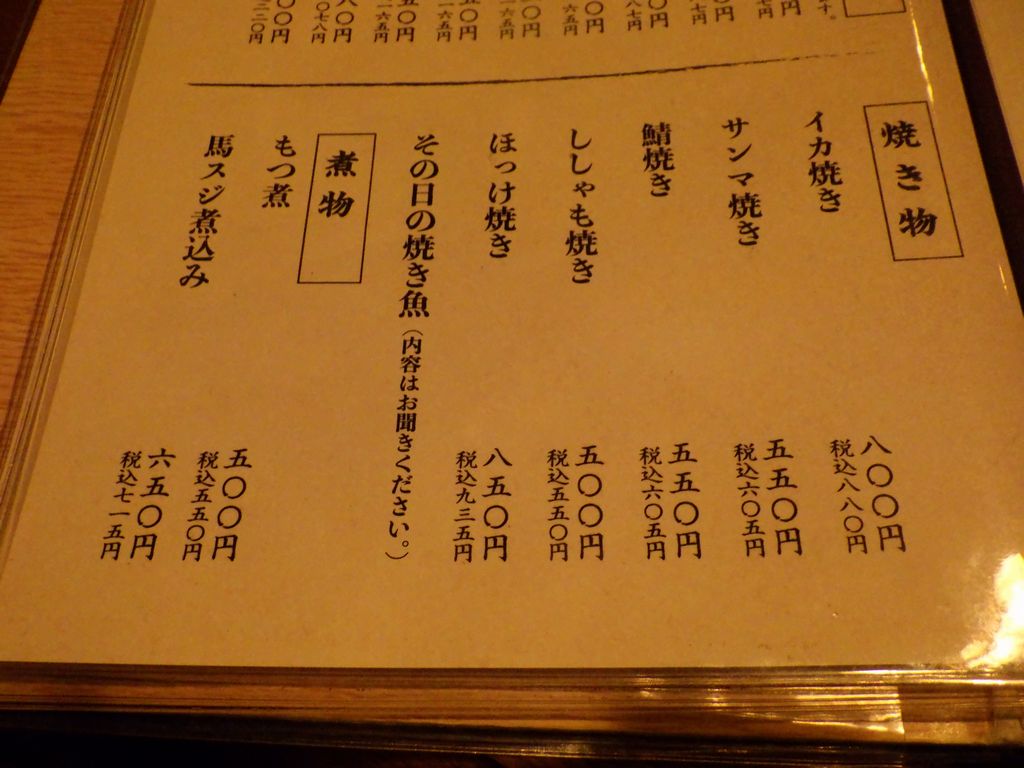 焼き物
イカ焼き
八〇〇円
税込八八〇円
サンマ焼き
五五〇円
税込六〇五円
鯖焼き
五五〇円
税込六〇五円
ししゃも焼き
五〇〇円
税込五五〇円
ほっけ焼き
八五〇円
税込九三五円
その日の焼き魚(内容はお聞きください。)
煮物
もつ煮
五〇〇円
税込五五〇円
馬スジ煮込み
六五〇円
税込七一五円